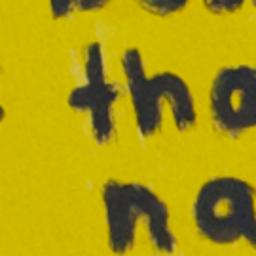 tha
na